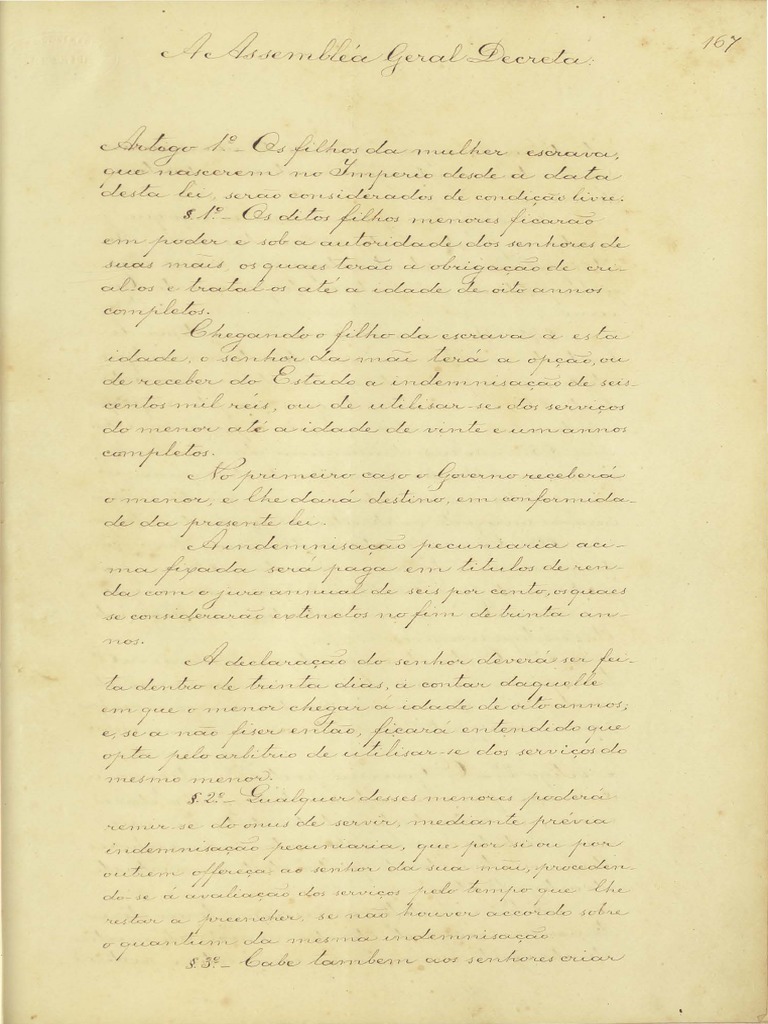 167
A Assembléa Geral Decreta:
Artogo 1º - Os filhos da mulher escrava,
que nascerem no Imperio desde a data
desta lei, serão considerados de condição livre.
§. 1º - Os ditos filhos menores ficarão
em poder e sob a autoridade dos senhores de
suas mãis, os quaes terão a obrigação de cri-
al-os e tratal-os até a idade de oito annos
completos.
Chegando o filho da escrava a esta
idade, o senhor da mãi terá a opção, ou
de receber do Estado a indemnisação de seis-
centos mil réis, ou de utilisar-se dos serviços
do menor até a idade de vinte e um annos
completos.
No primeiro caso o Governo receberá
o menor, e lhe dará destino, em conformida-
de da presente lei.
A indemnisação pecuniaria aci-
ma fixada será paga em titulos de ren-
da com o juro annual de seis por cento, os quaes
se considerarão extinctos no fim de trinta an-
nos.
A declaração do senhor deverá ser fei-
ta dentro de trinta dias, a contar daquelle
em que o menor chegar á idade de oito annos;
e, se a não fiser então, ficará entendido que
opta pelo arbitrio de utilisar-se dos serviços do
mesmo menor.
§. 2º - Qualquer desses menores poderá
remir-se do onus de servir, mediante prévia
indemnisação pecuniaria, que por si ou por
outrem offereça ao senhor da sua mãi, proceden-
do-se á avaliação dos serviços pelo tempo que lhe
restar a preencher, se não houver accôrdo sobre
o quantum da mesma indemnisação
§. 3º - Cabe tambem aos senhores criar